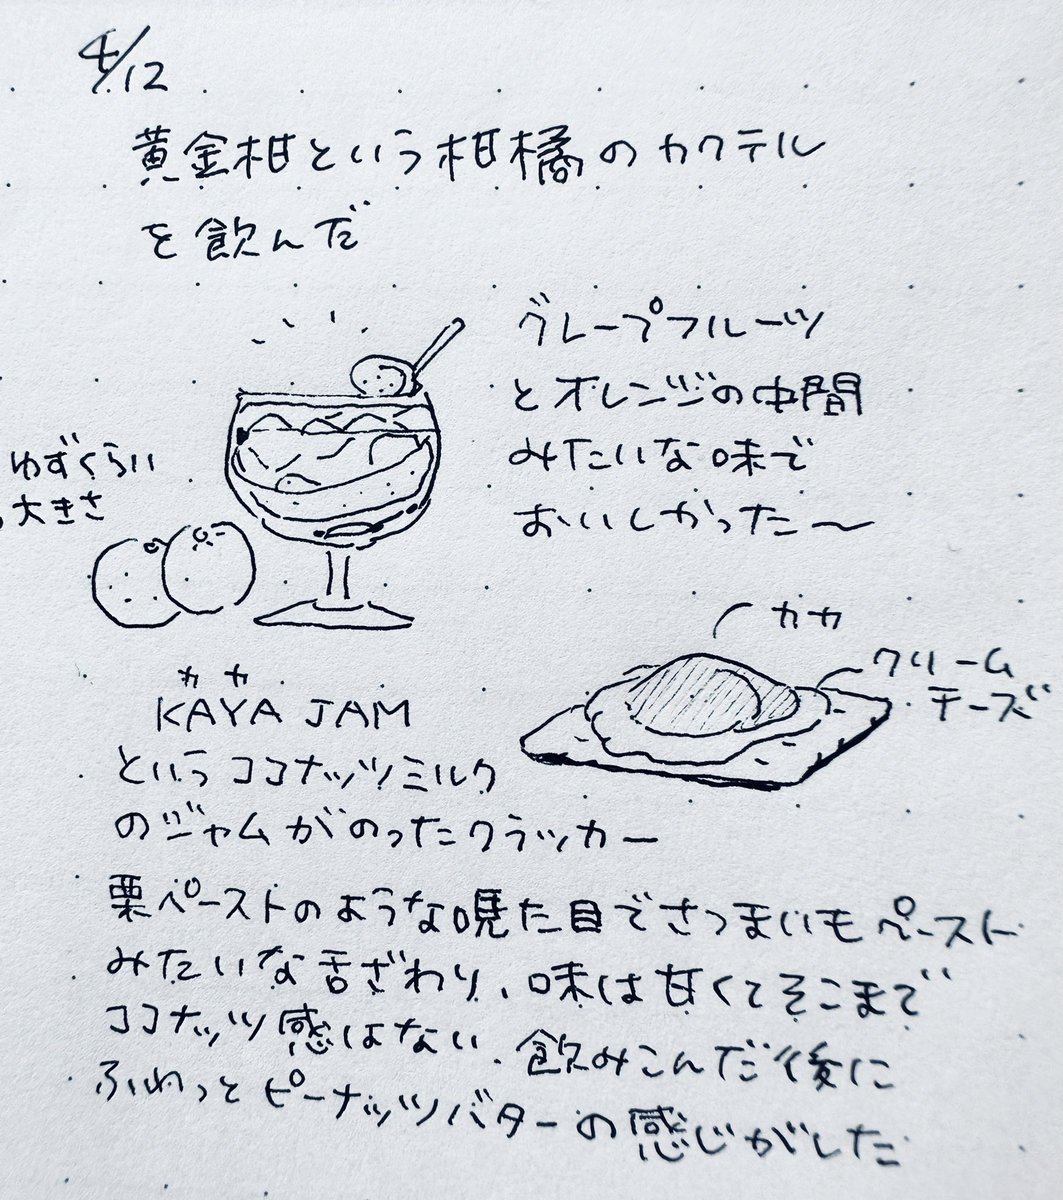 4/12
黄金柑という柑橘のカクテル
を飲んだ
グレープフルーツ
とオレンジの中間
みたいな味で
おいしかった〜
ゆずくらい
大きさ
カヤ
クリーム
チーズ
カヤ
KAYA JAM
というココナッツミルク
のジャムがのったクラッカー
栗ペーストのような見た目でさつまいもペースト
みたいな舌ざわり、味は甘くてそこまで
ココナッツ感はない、飲みこんだ後に
ふわっとピーナッツバターの感じがした